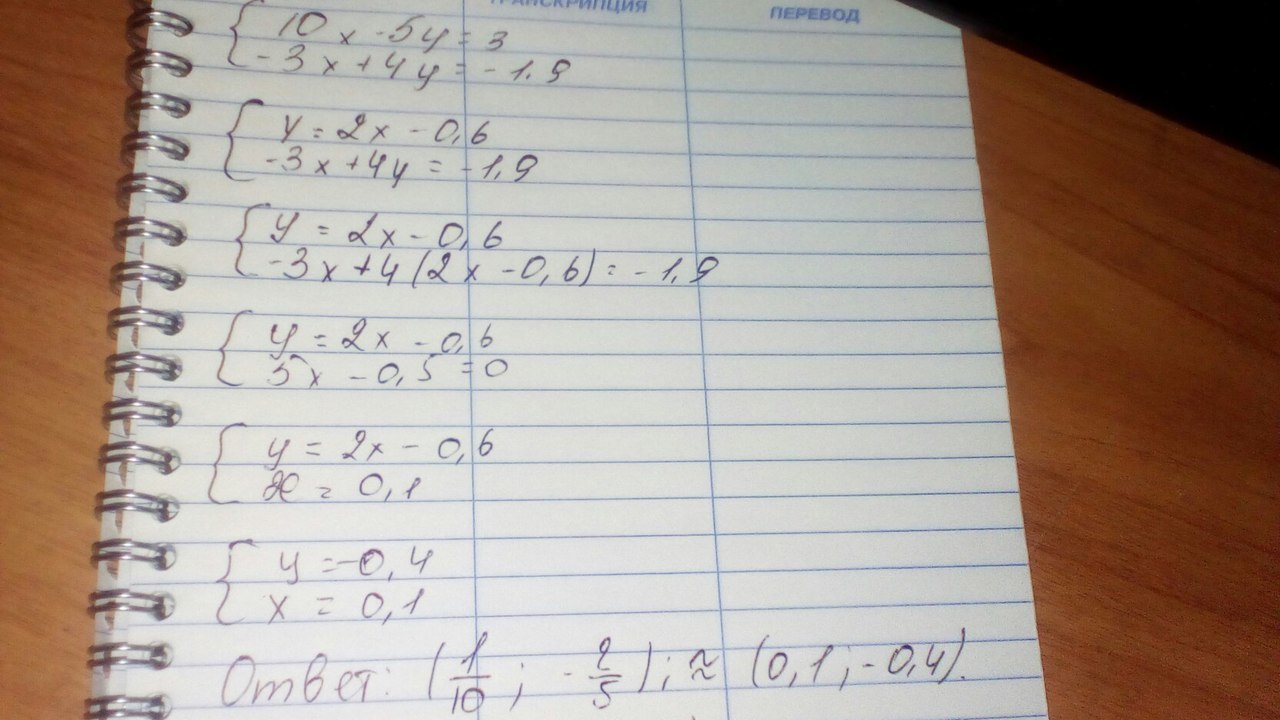 ТРАНСКРИПЦИЯ ПЕРЕВОД
10x - 5y = 3
-3x + 4y = -1.9
y = 2x - 0,6
-3x + 4y = -1,9
y = 2x - 0,6
-3x + 4(2x - 0,6) = -1,9
y = 2x - 0,6
5x - 0,5 = 0
y = 2x - 0,6
x = 0,1
y = -0,4
x = 0,1
Ответ: (1/10 ; -2/5) ; ≈ (0,1 ; -0,4).